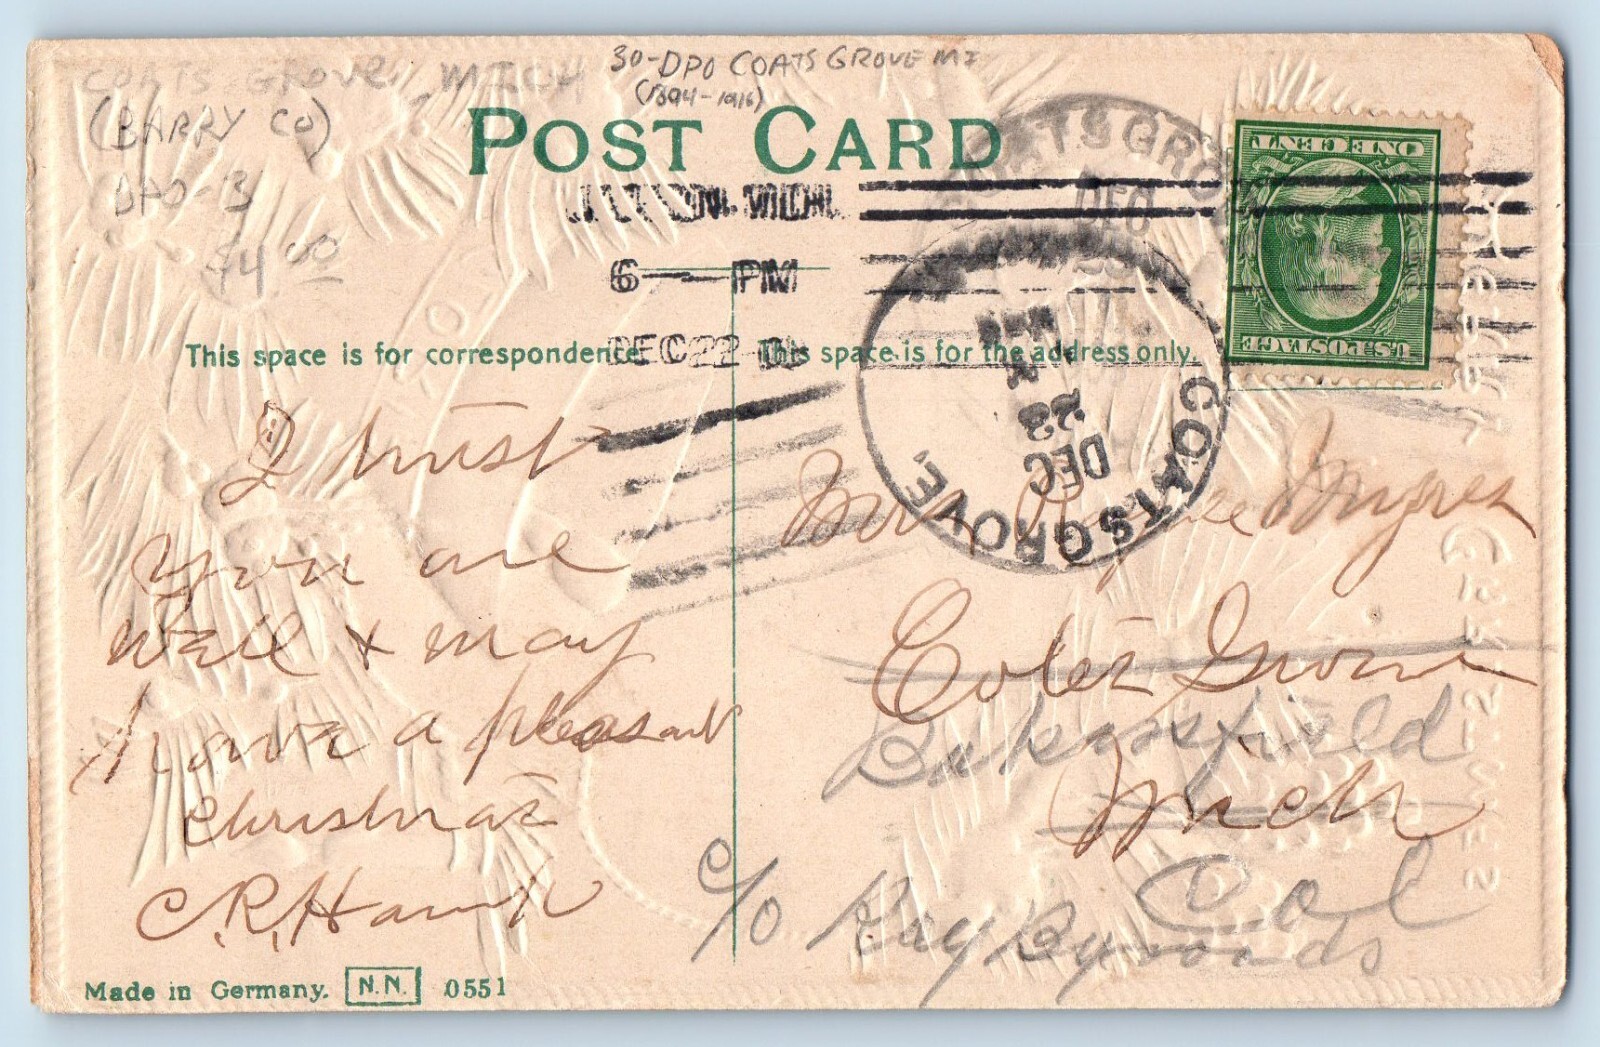 COATS GROVE, MICH
(BARRY CO)
DPO-B
$4.00
30-DPO COATS GROVE MI
(1894-1916)
POST CARD
MICH.
6 - PM
DEC 22
COATS GROVE
DEC
COATS GROVE
DEC
23
ONE CENT
U.S. POSTAGE
This space is for correspondence
This space is for the address only.
I trust
you are
well & may
have a pleasant
Christmas
C.R. Hawk
Mrs Myres
Cotes Grove
Mich
Bakersfield
Cal
c/o Ray Bywonds
Made in Germany. N.N. 0551